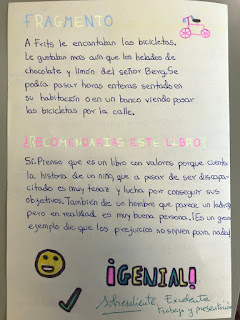 FRAGMENTO
A Frits le encantaban las bicicletas.
Le gustaban más aún que los helados de
chocolate y limón del señor Berg. Se
podía pasar horas enteras sentado en
su habitación o en un banco viendo pasar
las bicicletas por la calle.
¿RECOMENDARIAS ESTE LIBRO?
Sí. Pienso que es un libro con valores porque cuenta
la historia de un niño que a pesar de ser discapa-
citado es muy tenaz y lucha por conseguir sus
objetivos. También de un hombre que parece un ladrón
pero en realidad es muy buena persona. ¡Es un gran
ejemplo de que los prejuicios no sirven para nada!
¡GENIAL!
Sobresaliente, Excelente
trabajo y presentación